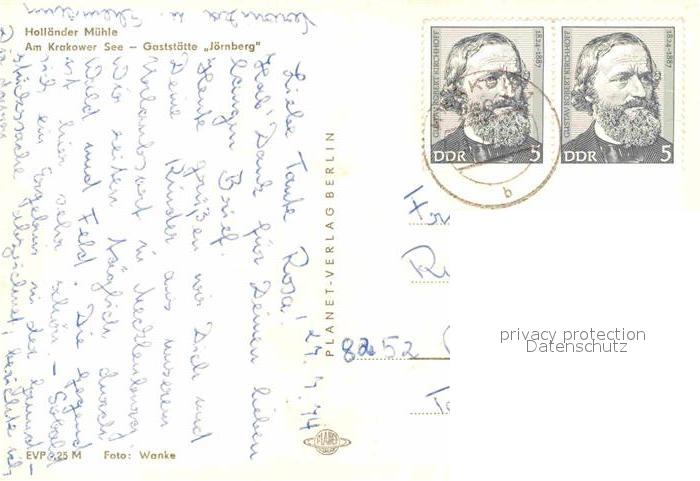 Holländer Mühle
Am Krakower See — Gaststätte „Jörnberg"
27.7.74
Liebe Tante Rosa!
Hab' Dank für Deinen lieben
langen Brief.
Heute grüßen wir Dich und
Deine Kinder aus unserem
Urlaubsort in Mecklenburg.
Wir reiten täglich durch
Wald und Feld. Die Gegend
ist hier sehr schön. - Sobald
sich ein Ergebnis in der Grund-
stückssache abzeichnet, berichte ich
Dir davon.
EVP -,25 M Foto: Wanke
PLANET-VERLAG BERLIN
PLANET
GUSTAV ROBERT KIRCHHOFF
1824-1887
DDR 5
GUSTAV ROBERT KIRCHHOFF
1824-1887
DDR 5
b
8252
privacy protection
Datenschutz